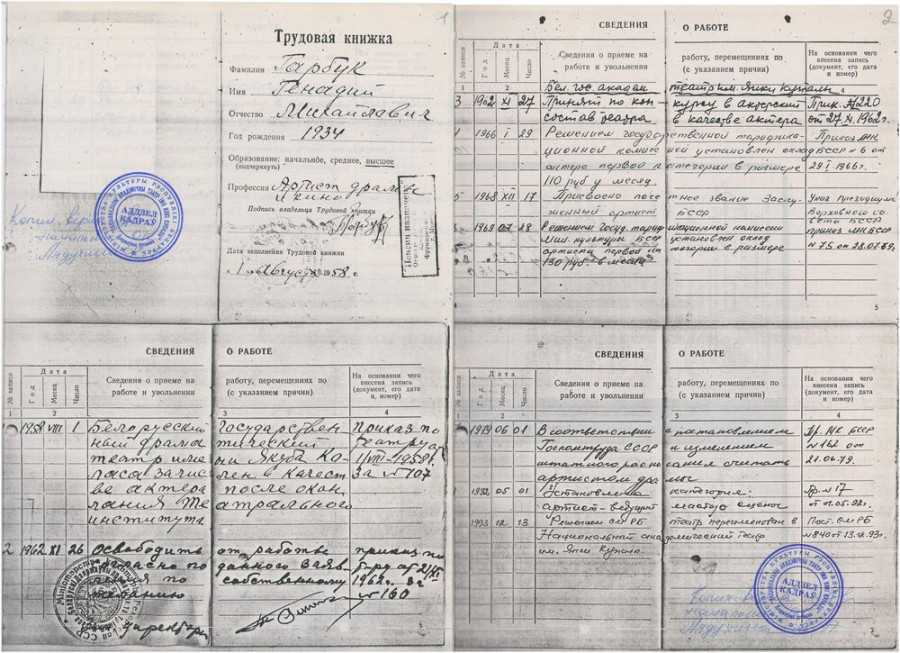 1
Трудовая книжка
Фамилия Гарбук
Имя Генадий
Отчество Михайлавич
Год рождения 1934
Образование: начальное, среднее, высшее
(подчеркнуть)
Профессия Артист драмы
и кино
Подпись владельца Трудовой книжки
Дата заполнения Трудовой книжки
1 Августа 1958 г.
АДДЗЕЛ
КАДРАЎ
Копия
2
СВЕДЕНИЯ О РАБОТЕ
№ записи
Дата
Год Месяц Число
Сведения о приеме на работу, перемещениях по
работе и увольнении (с указанием причин)
На основании чего
внесена запись
(документ, его дата
и номер)
1 2 3 4
Бел. гос. академ. театр им. Янки Купалы
3 1962 XI 27 Принят по конкурсу в актерский Прик. №220
состав театра в качестве актера от 27 XI 1962 г.
4 1966 I 29 Решением государственной тарифика-
ционной комиссией установлен оклад БССР №6 от
актера первой категории в размере 29.I.1966 г.
110 руб в месяц
5 1968 XII 17 Присвоено почетное звание Заслу- Указ Президиума
женный артист БССР Верховного со
вета БССР
1969 07 28 Решением госуд. тарификационной комиссии приказ МК БССР
Мин. культуры БССР установлен оклад №75 от 28.07.69г.
артиста первой категории в размере
130 руб. в месяц
3
СВЕДЕНИЯ О РАБОТЕ
№ записи
Дата
Год Месяц Число
Сведения о приеме на работу, перемещениях по
работе и увольнении (с указанием причин)
На основании чего
внесена запись
(документ, его дата
и номер)
1 2 3 4
1958 VIII 1 Белорусский Государствен Приказ по
ный драматический театру
театр имени Якуба Ко 1/VIII-1958г.
ласа зачислен качест За №107
ве актера после окон
чания Театрального
института
2 1962 XI 26 Освободить от работы приказ по
согласно поданного заяв т-ру от 21/XI
ления по собственному 1962г. за
желанию №160
Директор
СВЕДЕНИЯ О РАБОТЕ
№ записи
Дата
Год Месяц Число
Сведения о приеме на работу, перемещениях по
работе и увольнении (с указанием причин)
На основании чего
внесена запись
(документ, его дата
и номер)
1 2 3 4
1979 06 01 В соответствии с постановлением Пр. МК БССР
Госкомтруда СССР и изменением №162 от
штатного расписания считать 21.06.79.
артистом драмы
1992 05 01 Установлена категория: Пр. №17
артист-ведущий мастер сцены от 01.05.92 г.
1993 12 13 Решением СМ РБ театр переименован в Пост. СМ РБ
Национальный академический театр №840 от 13.12.93г.
им. Янки Купала
АДДЗЕЛ
КАДРАЎ
Копия